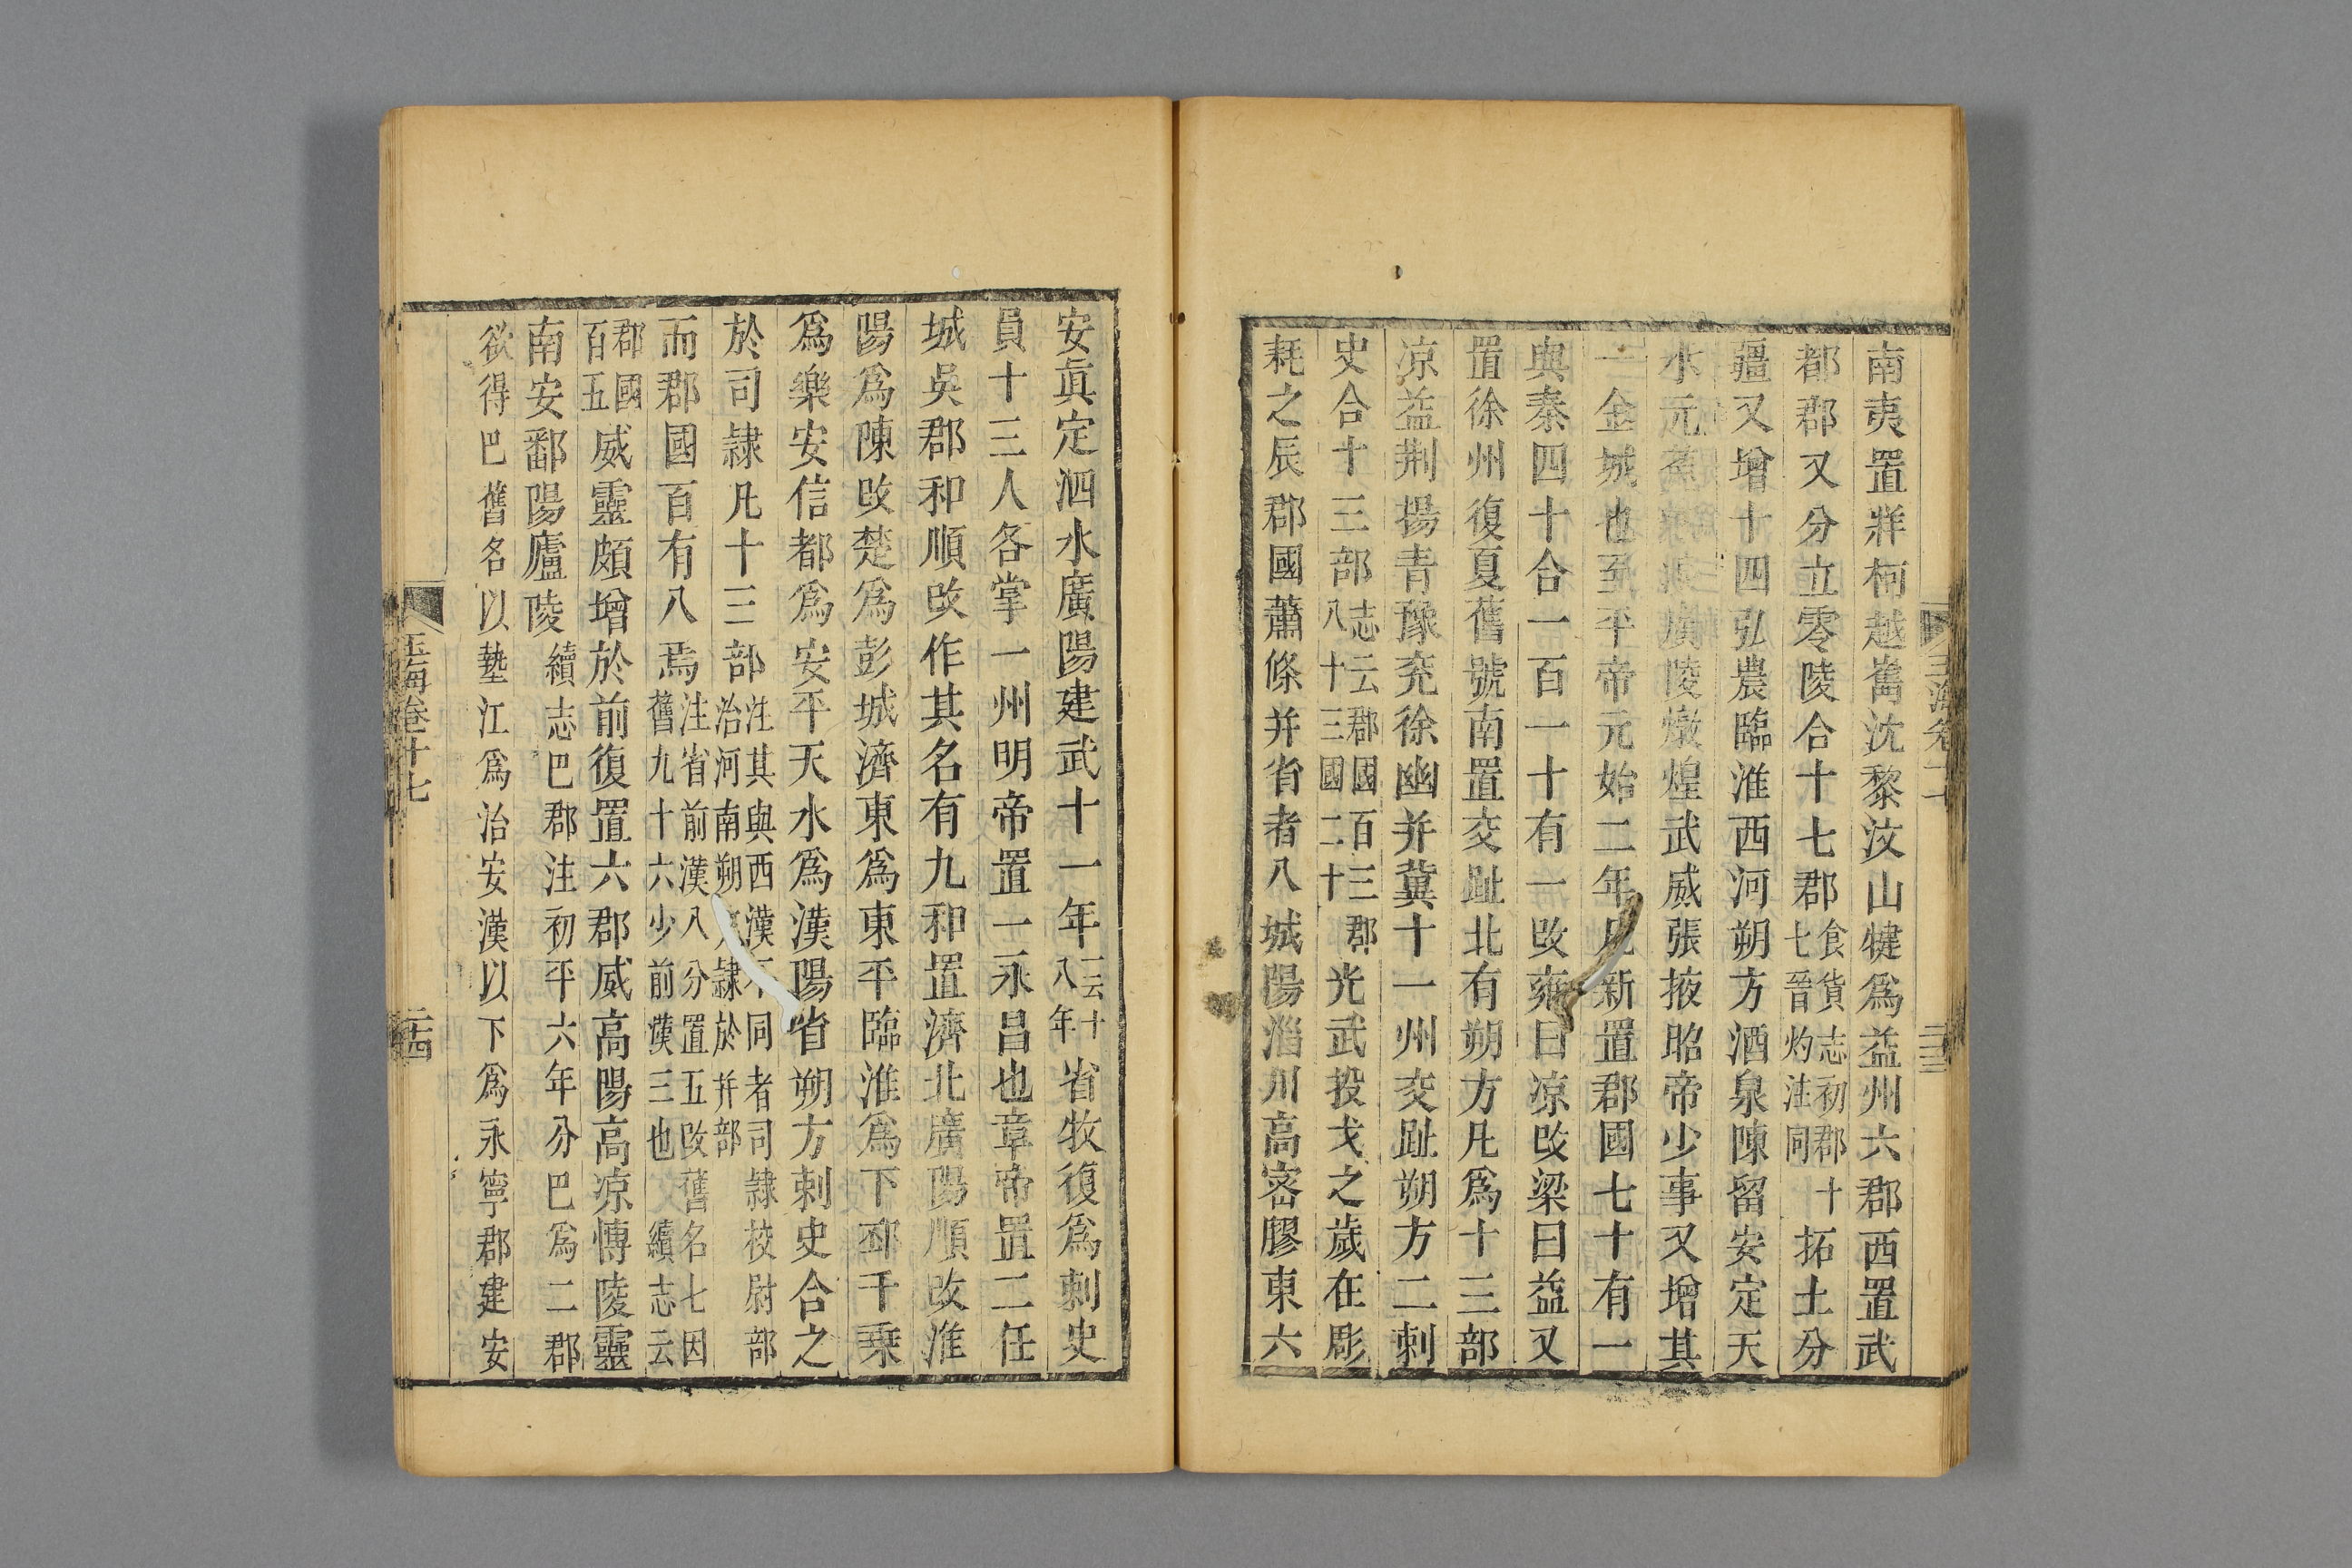 南夷置牂柯越嶲沈黎汶山犍爲益州六郡西置武
都郡又分立零陵合十七郡食貨志初郡十七晉灼注同拓土分
疆又增十四弘農臨淮西河朔方酒泉陳留安定天
水元廣陵燉煌武威張掖昭帝少事又增其
一金城也至平帝元始二年凡新置郡國七十有一
與秦四十合一百一十有一改雍曰凉改梁曰益又
置徐州復夏舊號南置交趾北有朔方凡爲十三部
凉益荆揚青豫兖徐幽并冀十一州交趾朔方二刺
史合十三部志云郡國百三郡八十三國二十光武投戈之歲在彫
耗之辰郡國蕭條并省者八城陽淄川高密膠東六
安眞定泗水廣陽建武十一年一云十八年省牧復爲刺史
員十三人各掌一州明帝置一永昌也章帝置二任
城吳郡和順改作其名有九和置濟北廣陽順改淮
陽爲陳改楚爲彭城濟東爲東平臨淮爲下邳千乗
爲樂安信都爲安平天水爲漢陽省朔方刺史合之
於司隷凡十三部注其與西漢不同者司隷校尉部治河南朔隷於并部
而郡國百有八焉注省前漢八分置五改舊名七因舊九十六少前漢三也續志云
郡國百五威靈頗增於前復置六郡威高陽高凉愽陵靈
南安鄱陽廬陵續志巴郡注初平六年分巴爲二郡
欲得巴舊名以墊江爲治安漢以下爲永寧郡建安
玉海卷十七
二十四